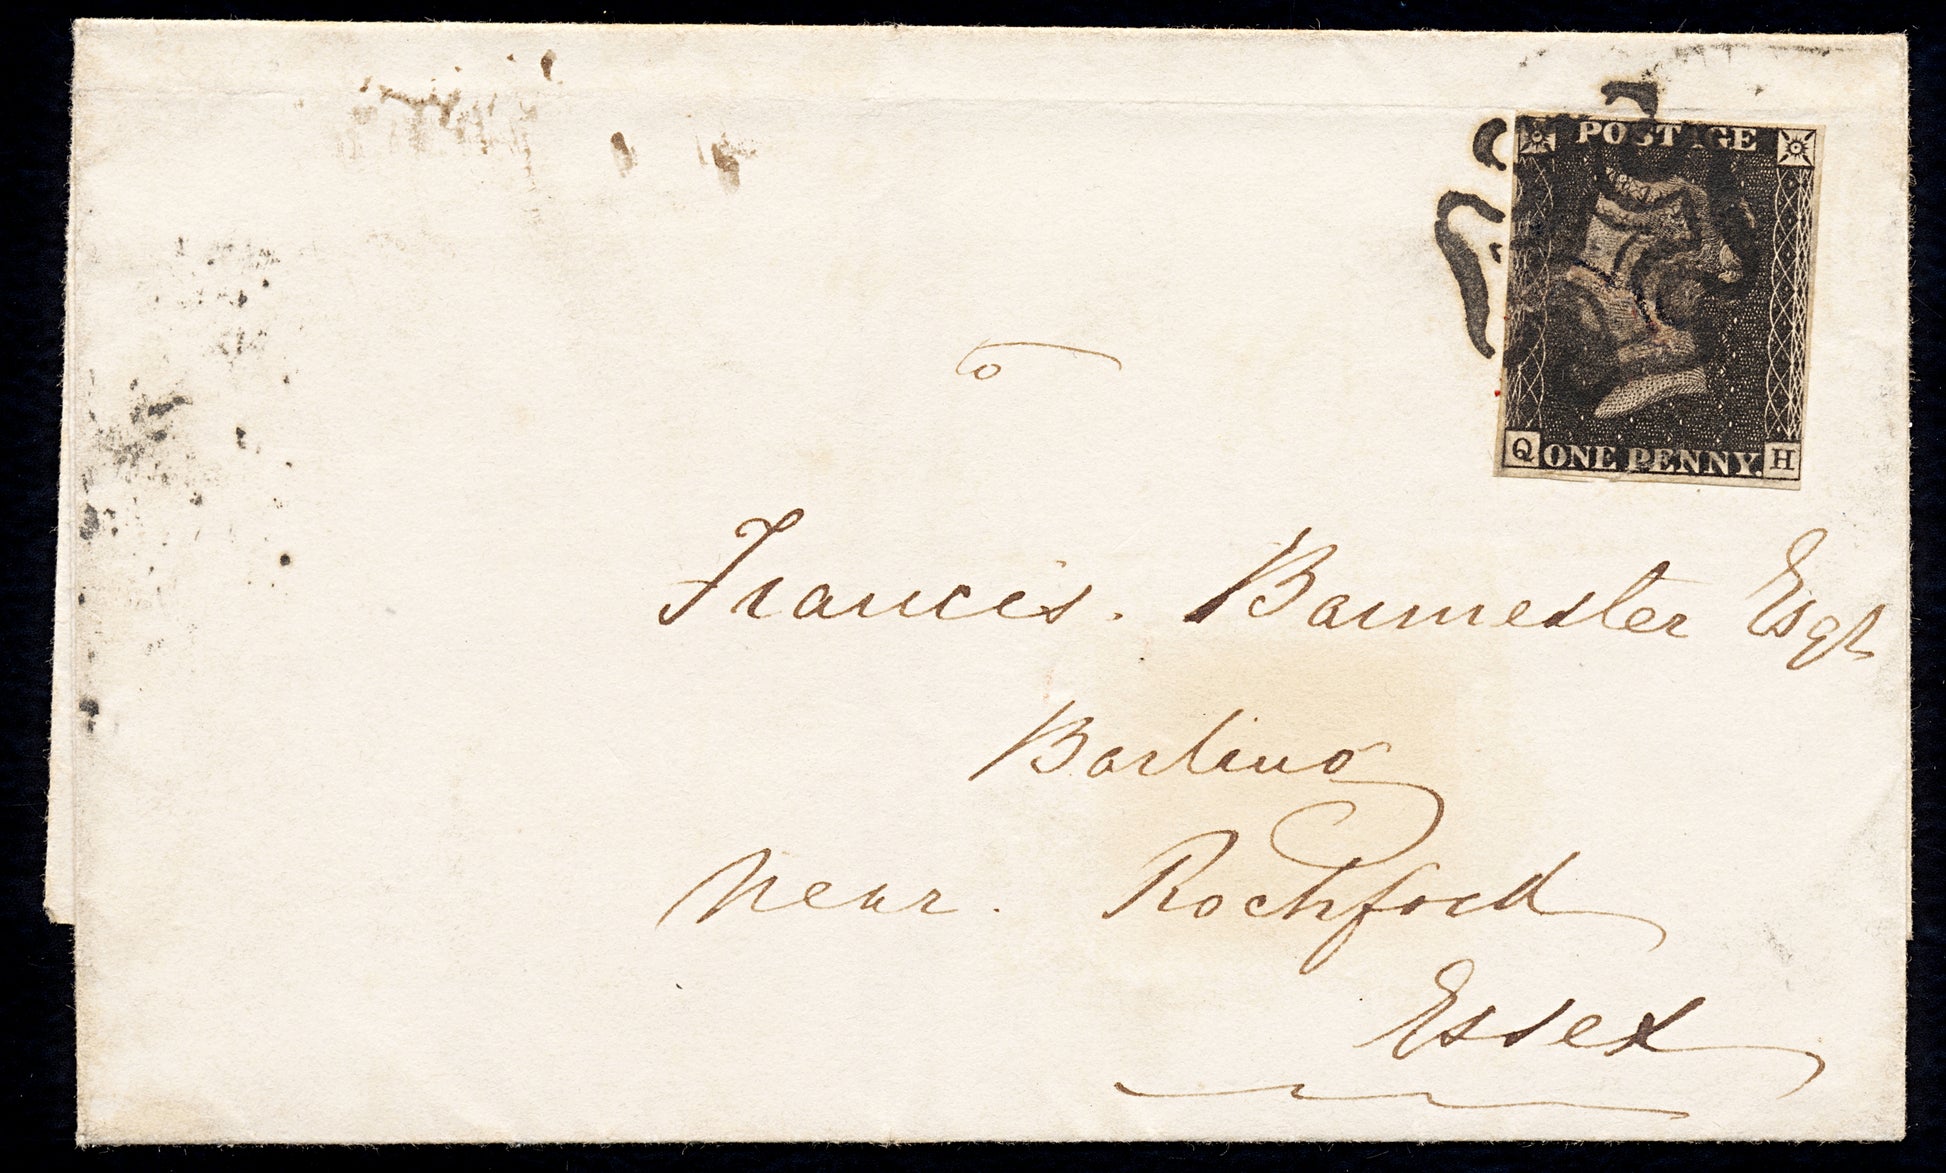 POSTAGE
Q ONE PENNY. H
to
Francis. Bannester Esqr
Barling
near. Rochford
Essex